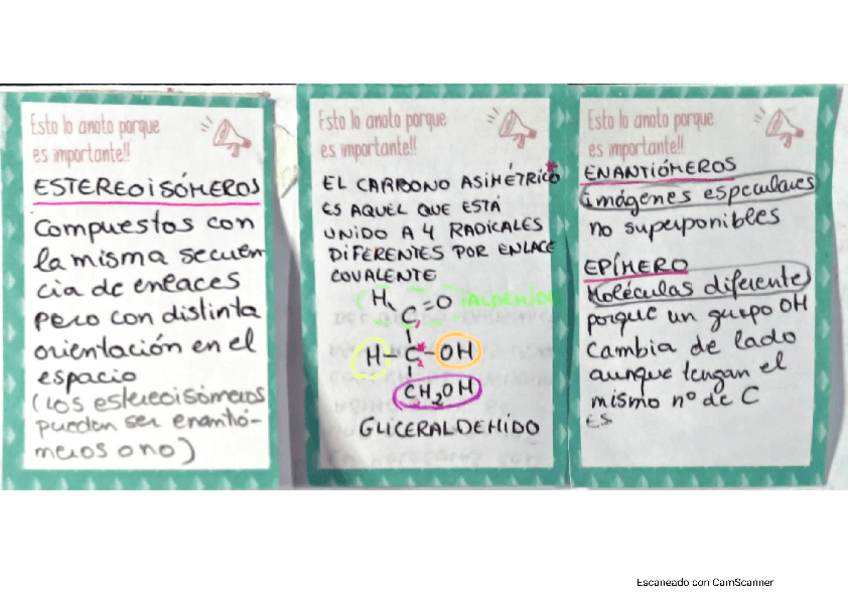 Esto lo anoto porque
es importante!!
ESTEREOISÓMEROS
Compuestos con
la misma secuen
cia de enlaces
pero con distinta
orientación en el
espacio
(los estereoisómeros
pueden ser enantió-
meros o no)
Esto lo anoto porque
es importante!!
EL CARBONO ASIMÉTRICO*
ES AQUEL QUE ESTÁ
UNIDO A 4 RADICALES
DIFERENTES POR ENLACE
COVALENTE
H C=O (ALDEHÍDO
H-C*-OH
CH2OH
GLICERALDEHÍDO
Esto lo anoto porque
es importante!!
ENANTIÓMEROS
imágenes especulares
no superponibles
EPÍMERO
Moléculas diferentes
porque un grupo OH
Cambia de lado
aunque tengan el
mismo nº de C
ES
Escaneado con CamScanner